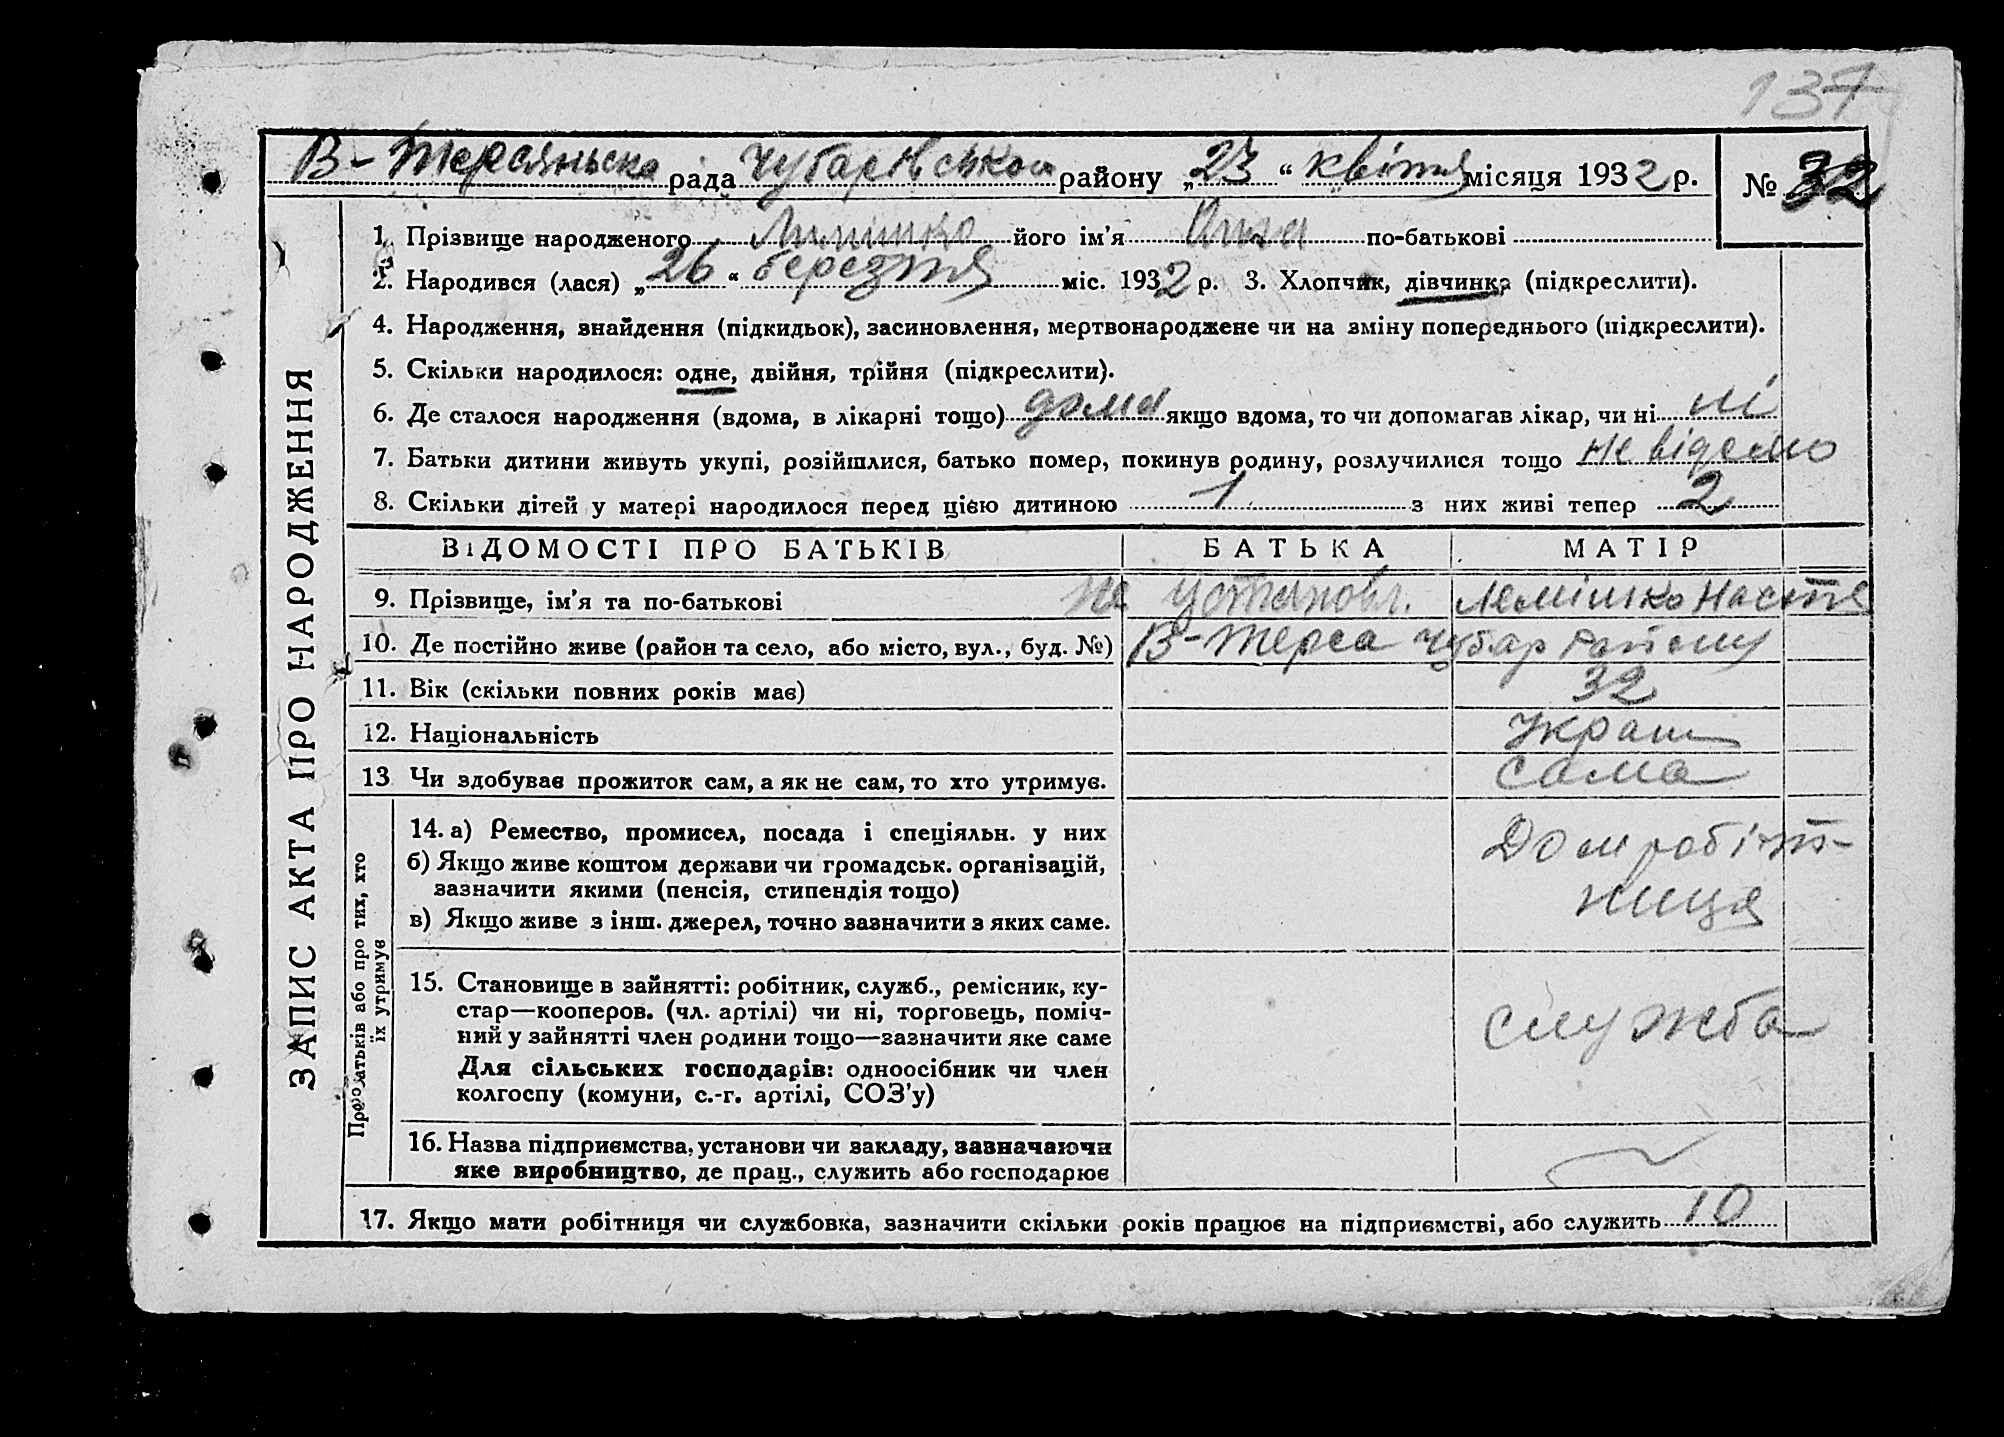 137
В-Терсяньска рада Чубарівськои району „23“ квітня місяця 1932 р. № 32
1. Прізвище народженого його ім’я Анна по-батькові
2. Народився (лася) „26“ березня міс. 1932 р. 3. Хлопчик, дівчинка (підкреслити).
4. Народження, знайдення (підкидьок), засиновлення, мертвонароджене чи на зміну попереднього (підкреслити).
5. Скільки народилося: одне, двійня, трійня (підкреслити).
6. Де сталося народження (вдома, в лікарні тощо) дома якщо вдома, то чи допомагав лікар, чи ні ні
7. Батьки дитини живуть укупі, розійшлися, батько помер, покинув родину, розлучилися тощо не відемо
8. Скільки дітей у матері народилося перед цією дитиною 1 з них живі тепер 2
ЗАПИС АКТА ПРО НАРОДЖЕННЯ
ВІДОМОСТІ ПРО БАТЬКІВ БАТЬКА МАТІР
9. Прізвище, ім’я та по-батькові не установл. Лемішко Настя
10. Де постійно живе (район та село, або місто, вул., буд. №) В-Терса Чубар району
11. Вік (скільки повних років має) 32
12. Національність Украін
13 Чи здобуває прожиток сам, а як не сам, то хто утримує. сама
Про батьків або про тих, хто
їх утримує
14. а) Ремество, промисел, посада і спеціяльн. у них Дом робіт-
б) Якщо живе коштом держави чи громадськ. організацій,
зазначити якими (пенсія, стипендія тощо) ниця
в) Якщо живе з інш. джерел, точно зазначити з яких саме.
15. Становище в зайнятті: робітник, служб., ремісник, ку-
стар—кооперов. (чл. артілі) чи ні, торговець, поміч-
ний у зайнятті член родини тощо—зазначити яке саме служба
Для сільських господарів: одноосібник чи член
колгоспу (комуни, с.-г. артілі, СОЗ’у)
16. Назва підприємства, установи чи закладу, зазначаючи
яке виробництво, де прац., служить або господарює
17. Якщо мати робітниця чи службовка, зазначити скільки років працює на підприємстві, або служить 10